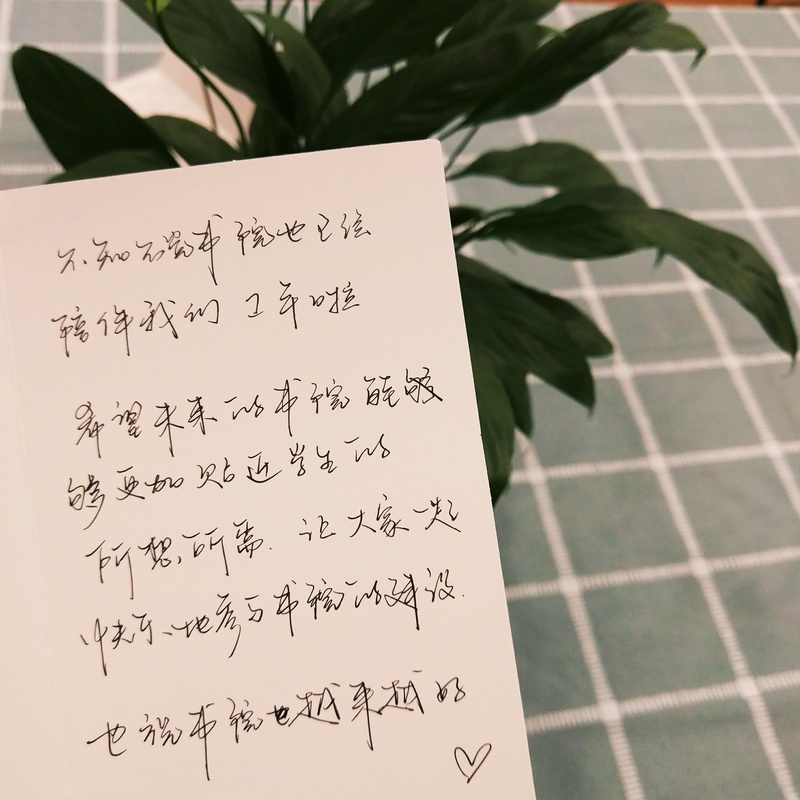 不知不觉书院也已经
陪伴我们 2年啦
希望未来的书院能够
够更加贴近学生的
所想,所需. 让大家一起
快乐地参与书院的建设.
也祝书院也越来越好